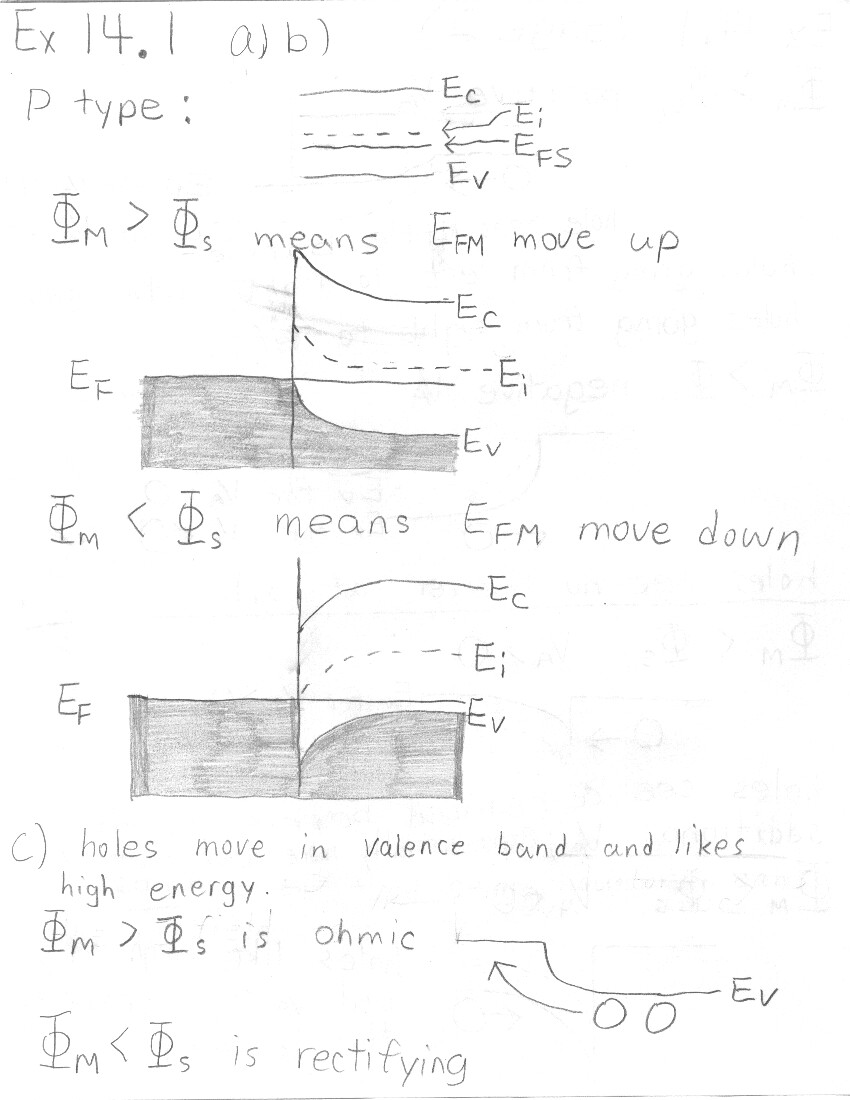 Ex 14.1 a) b)
P type:
Ec
Ei
EFS
Ev
ΦM > Φs means EFM move up
Ec
EF
Ei
Ev
Φm < Φs means EFM move down
Ec
Ei
EF
Ev
c) holes move in valence band and likes
high energy.
ΦM > Φs is ohmic
Ev
ΦM < Φs is rectifying